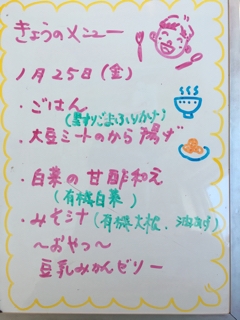 きょうのメニュー
1月25日(金)
・ごはん
(黒すりごまふりかけ)
・大豆ミートのから揚げ
・白菜の甘酢和え
(有機白菜)
・みそ汁(有機大根、油あげ)
～おやつ～
豆乳みかんゼリー